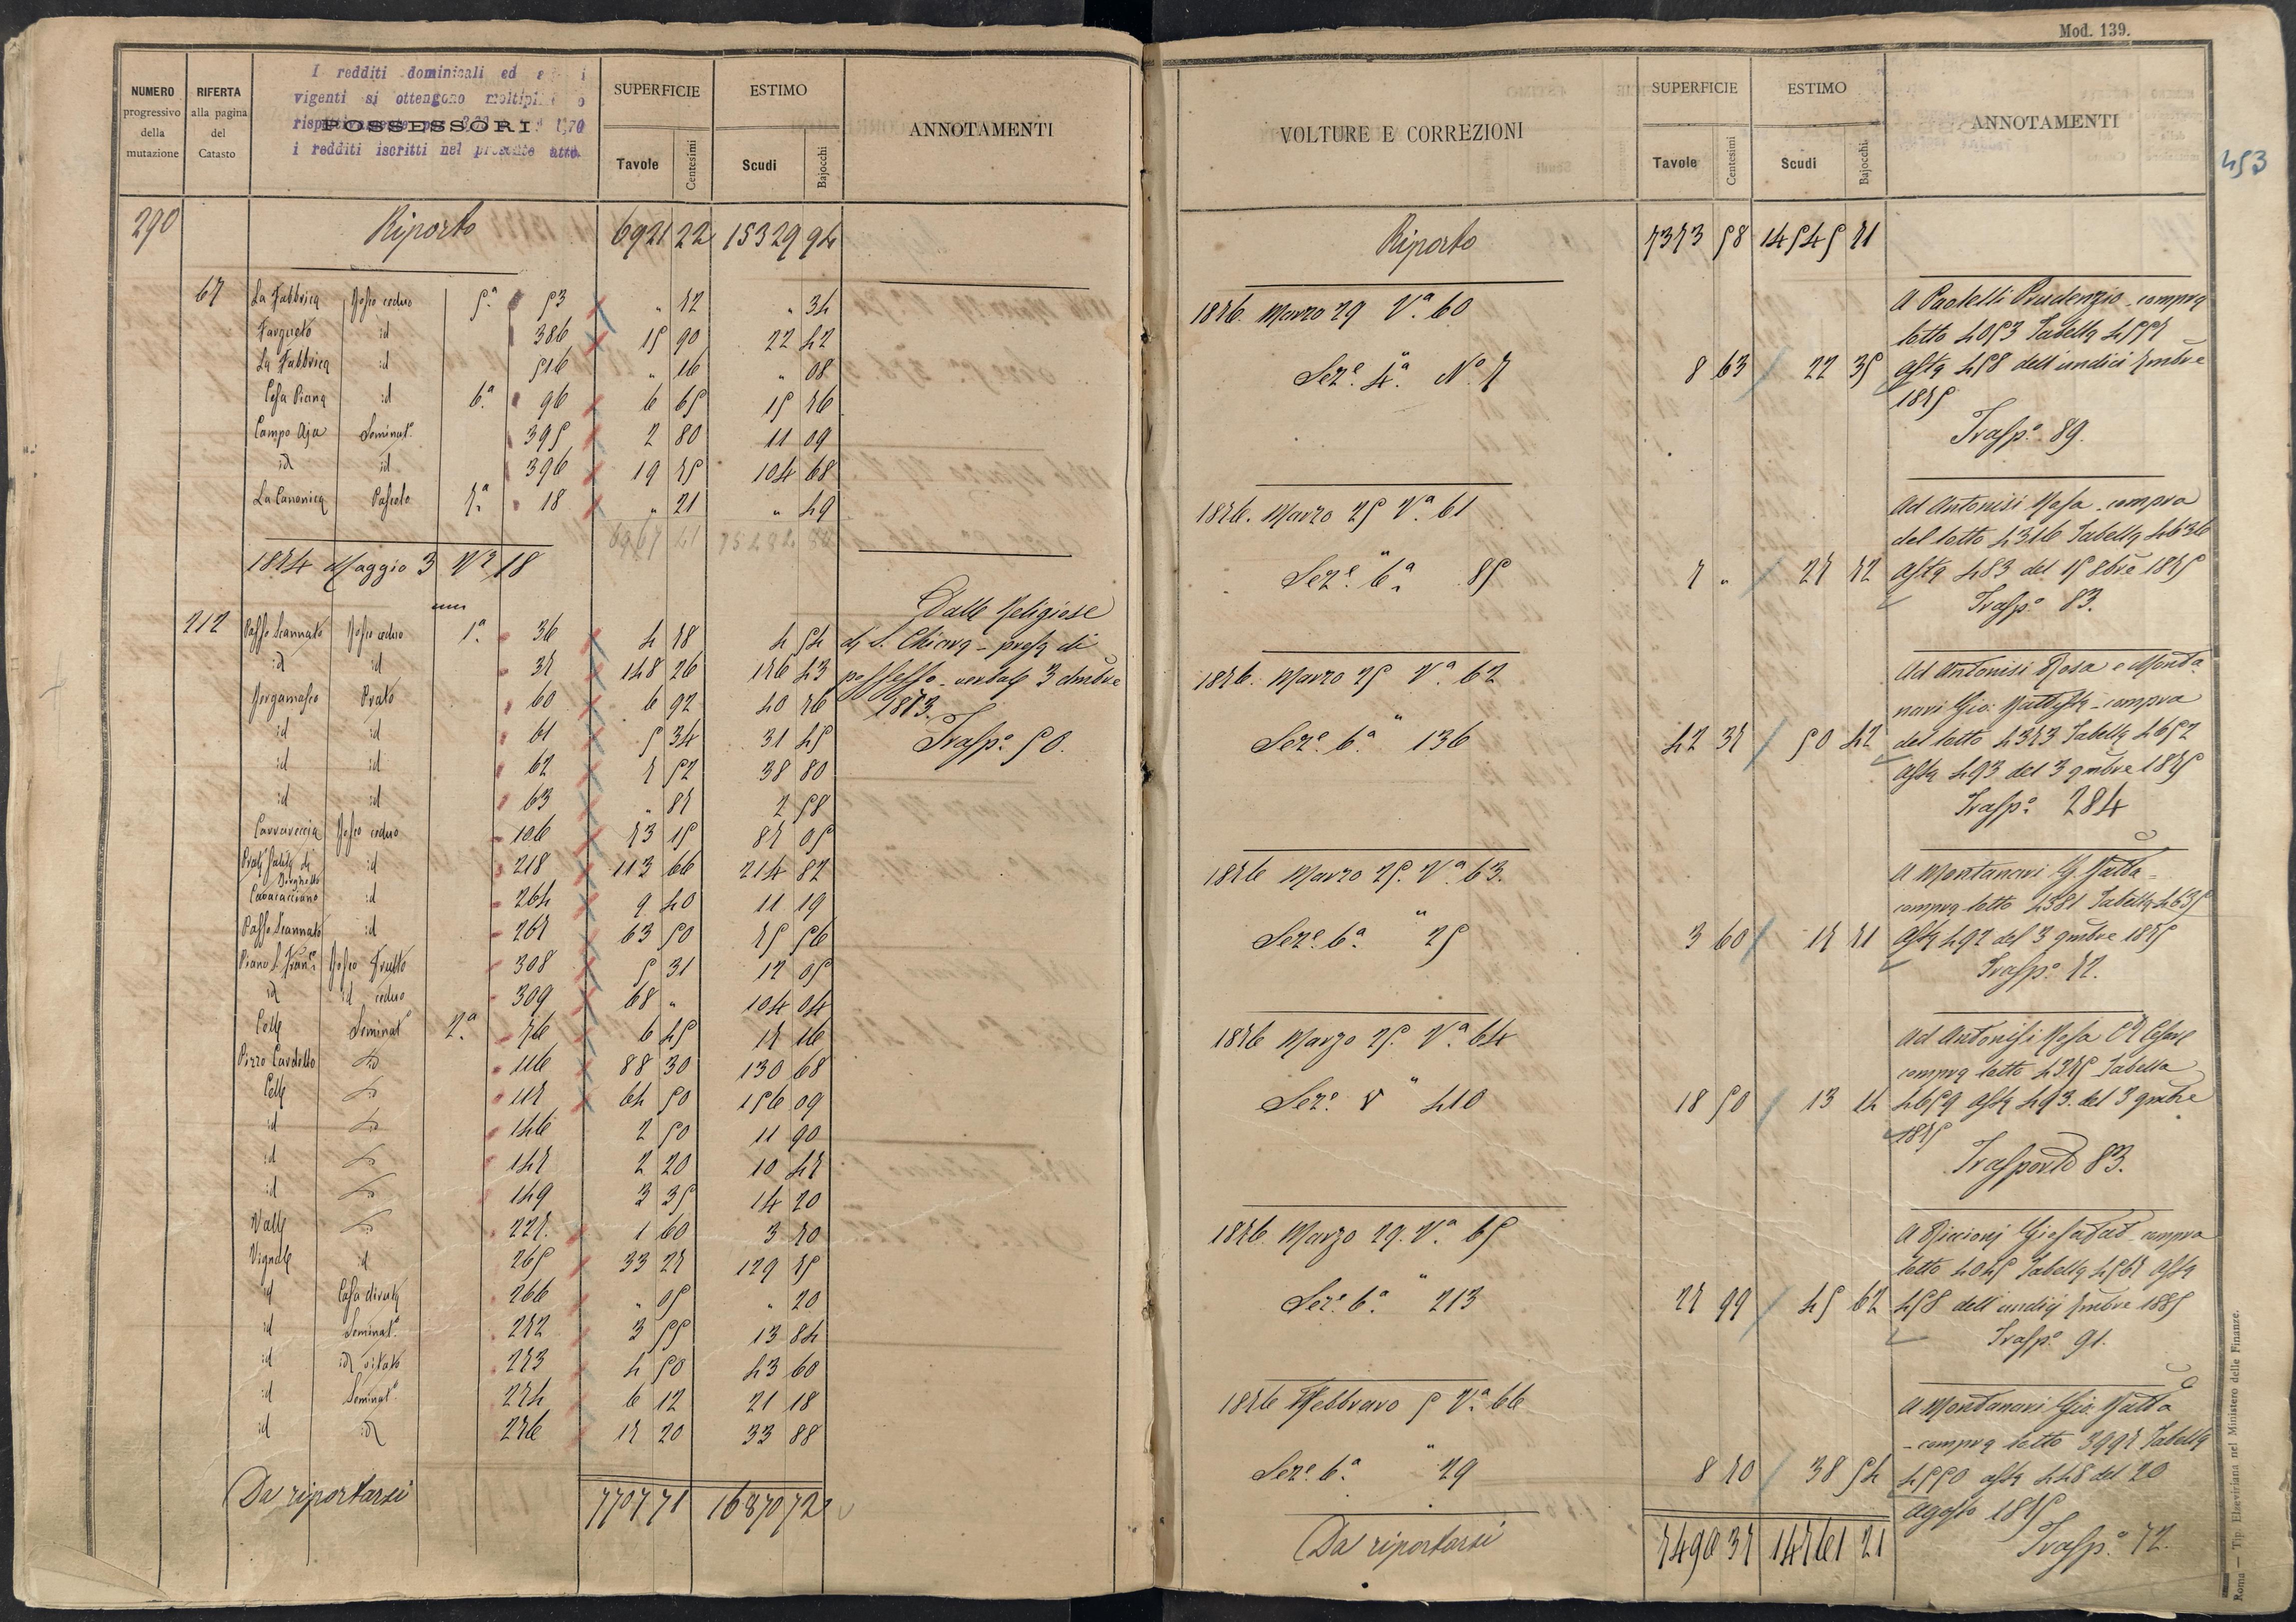 Mod. 139.
453
NUMERO progressivo della mutazione
RIFERTA alla pagina del Catasto
I redditi dominicali ed
vigenti si ottengono
POSSESSORI
i redditi iscritti nel presente atto.
SUPERFICIE
Tavole Centesimi
ESTIMO
Scudi Bajocchi
ANNOTAMENTI
290 Riporto 6921 22 15329 94
67 La Fabbrica Bosco ceduo 5.ª 53 " 72 " 34
Farqueto id 386 15 90 22 42
La Fabbrica id 516 " 16 " 08
Cesa Piana id 6.ª 96 6 65 15 76
Campo Aja Seminat.º 395 2 80 11 09
id id 396 19 75 104 68
La Canonica Pascolo 7.ª 18 " 21 " 49
1874 Maggio 3 Vª 18
212 Passo Scannato Bosco ceduo 1.ª 36 4 78 4 54
id id 37 148 26 176 43
Bergamasco Prato 60 6 92 40 76
id id 61 5 34 31 45
id id 62 7 52 38 80
id id 63 " 87 2 58
Carraveccia Bosco ceduo 106 73 15 87 05
id 218 113 66 214 82
id 264 9 40 11 19
Passo Scannato id 267 63 50 75 56
Piano S. Fran.º Bosco Frutto 308 5 31 12 05
id id ceduo 309 68 " 104 04
Colle Seminat.º 2.ª 76 6 45 17 16
Pizzo Cardillo id 116 88 30 130 68
Colle id 117 64 50 156 09
id id 146 2 50 11 90
id id 147 2 20 10 47
id id 149 3 35 14 20
Valle id 227 1 60 3 70
Vignale id 265 33 27 129 75
id Casa diruta 266 " 05 " 20
id Seminat.º 272 3 55 13 84
id id vitato 273 4 50 43 60
id Seminat.º 274 6 12 21 18
id id 276 17 20 33 88
Dalle Religiose
di S. Chiara - presa di
possesso - verbale 3 dmbre
1873.
Trasp.º 50.
Da riportarsi 7707 71 16870 72
VOLTURE E CORREZIONI
SUPERFICIE
Tavole Centesimi
ESTIMO
Scudi Bajocchi
ANNOTAMENTI
Riporto 7373 58 14545 71
1876. Marzo 29 Vª. 60
Sez.e 4.ª Nº 7 8 63 22 35
A Paolelli Prudenzio - compra
lotto 4053 Tabella 4557
asta 458 dell'undici 7mbre
1875
Trasp.º 89.
1876. Marzo 25 Vª. 61
Sez.e 6.ª " 85 7 " 27 72
Ad Antonisi Rosa - compra
del lotto 4316 Tabella 4636
asta 483 del 15 8bre 1875
Trasp.º 83.
1876. Marzo 25 Vª. 62
Sez.e 6.ª " 136 42 37 50 42
Ad Antonisi Rosa e Monta
nari Gio: Battista - compra
del lotto 4373 Tabella 4652
asta 493 del 3 9mbre 1875
Trasp.º 284
1876 Marzo 25. Vª. 63.
Sez.e 6.ª " 25 3 60 17 71
A Montanari G. Batta -
compra lotto 4381 Tabella 4635
asta 492 del 3 9mbre 1875
Trasp.º 72.
1876 Marzo 25. Vª. 64
Sez.e " 410 18 50 13 14
Ad Antonisi Rosa
compra lotto 4375 Tabella
4659 asta 493. del 3 9mbre
1875
Trasporto 83.
1876. Marzo 29. Vª. 65
Sez.e 6.ª " 213 27 99 45 62
A Riccioni Giosafat - compra
lotto 4045 Tabella 4567 asta
458 dell'undici 7mbre 1885
Trasp.º 91.
1876 Febbraro 5 Vª. 66
Sez.e 6.ª " 29 8 70 38 54
A Montanari Gio. Batta
- compra lotto 3997 Tabella
4550 asta 448 del 20
agosto 1875
Trasp.º 72.
Da riportarsi 7490 37 14761 21
Roma — Tip. Elzeviriana nel Ministero delle Finanze.